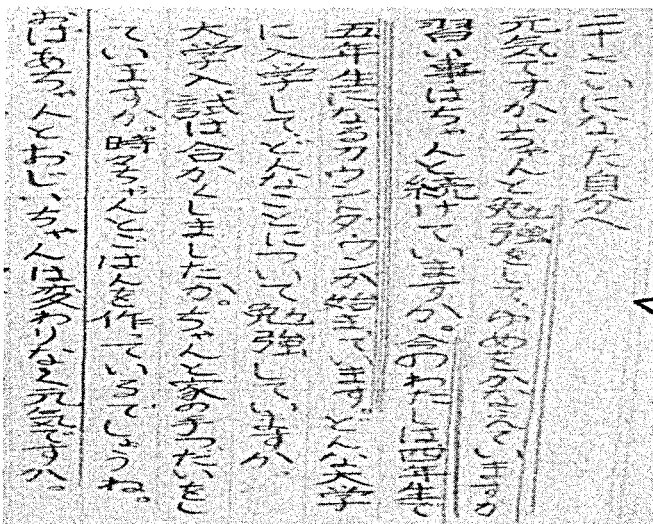 二十さいになった自分へ
元気ですか。ちゃんと勉強をして、ゆめをかなえていますか
習い事はちゃんと続けていますか。今のわたしは四年生で
五年生になるカウントダウンが始まっています。どんな大学
に入学して、どんなことについて勉強していますか。
大学入試は合かくしましたか。ちゃんと家の手つだいをし
ていますか。時々ちゃんとごはんを作っているでしょうね。
おばあちゃんとおじいちゃんは変わりなく元気ですか。